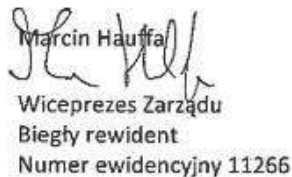 Marcin Hauffa
Wiceprezes Zarządu
Biegły rewident
Numer ewidencyjny 11266